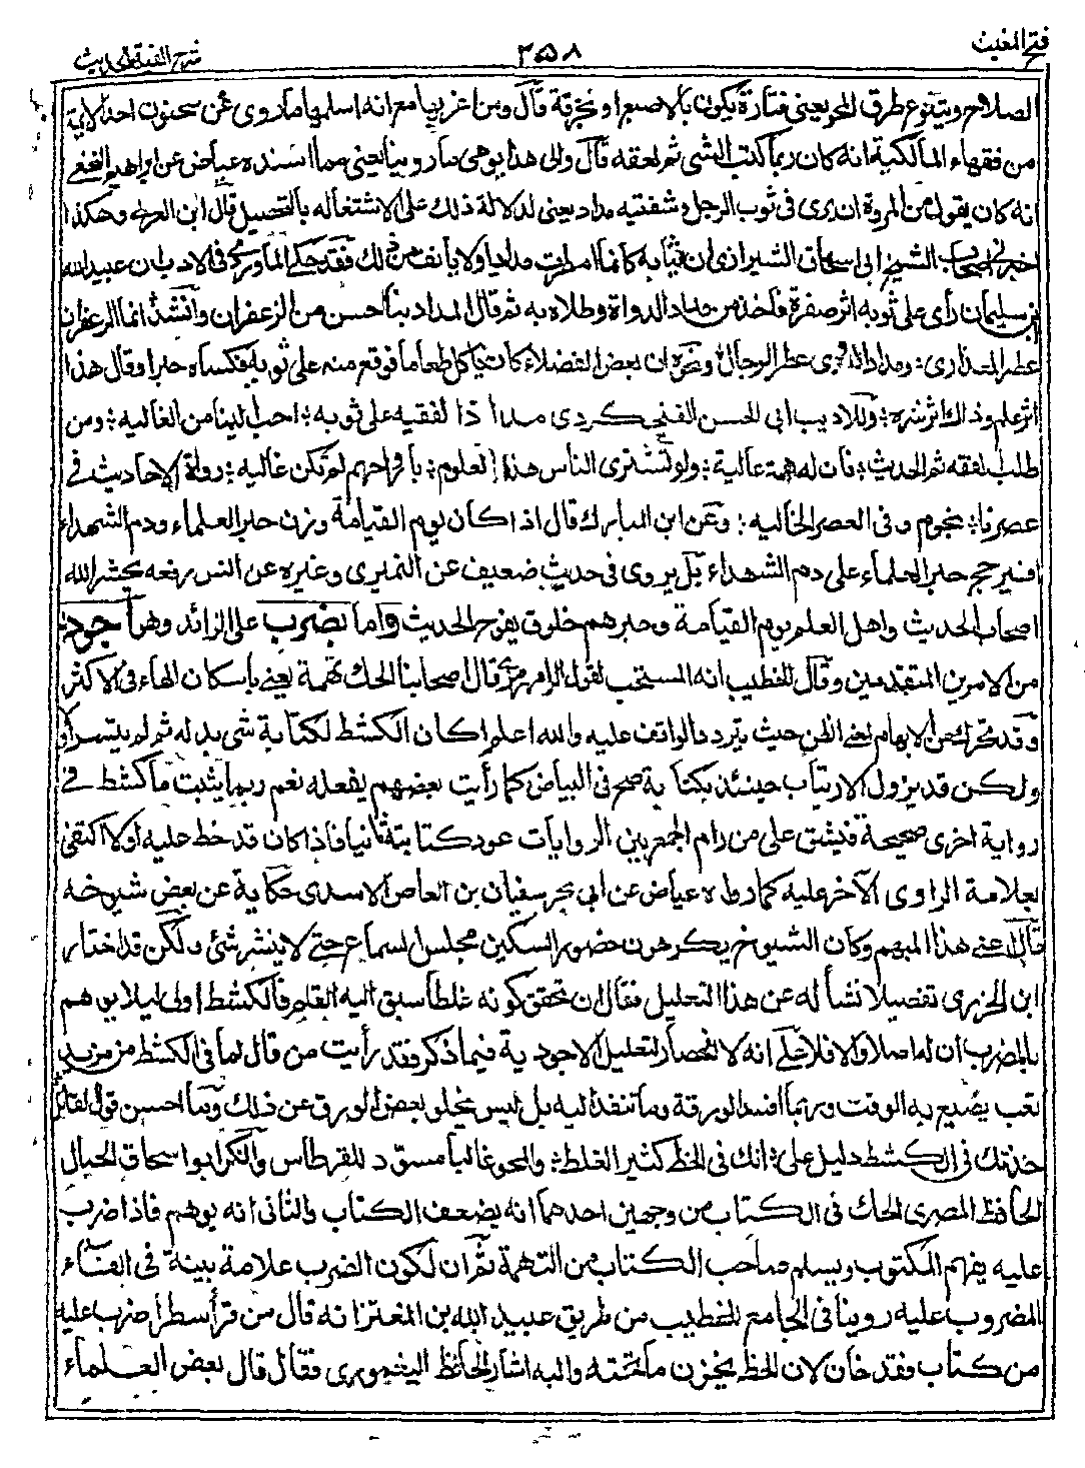 فتح المغيث
٣٥٨
شرح الفية الحديث
الصلاح ويتنوع طرق المحو يعني فتارة يكون بالاصبع او بخرقة قال ومن اغربها مع انه اسلمها ما روى عن سحنون احد الائمة
من فقهاء المالكية انه كان ربما كتب الشي ثم لعقه قال والى هذا يومى ما روينا يعني مما اسنده عياض عن ابراهيم النخعي
انه كان يقول من المروة ان يرى في ثوب الرجل وشفتيه مداد يعني لدلالة ذلك على الاشتغاله بالتحصيل قال ابن العربي وهكذا
اخبرني اصحاب الشيخ ابي اسحاق الشيرازي ان ثيابه كانما امطرت مدادا ولا يأنف من ذلك فقد حكى الماوردي في الادب ان عبيد الله
بن سليمان رأى على ثوبه اثر صفرة فاخذ من مداد الدواة وطلاه به ثم قال المداد بنا احسن من الزعفران وانشد انما الزعفران
عطر العذارى؛ ومداد الدوى عطر الرجال؛ ونحوه ان بعض الفضلاء كان ياكل طعاما فوقع منه على ثوبه فكساه حبرا وقال هذا
اثر علم وذاك اثر شره؛ وللاديب ابي الحسن الفنجكردي مداد الفقيه على ثوبه؛ احب الينا من الغاليه؛ ومن
طلب الفقه ثم الحديث؛ فان له همة عالية؛ ولو تشترى الناس هذا العلوم؛ بارواحهم لم تكن غاليه؛ رواة الاحاديث في
عصرنا؛ نجوم وفي العصر الخاليه؛ وعن ابن المبارك قال اذا كان يوم القيامة وزن حبر العلماء ودم الشهداء
فيرجح حبر العلماء على دم الشهداء بل يروى في حديث ضعيف عن النميري وغيره عن انس رفعه يحشر الله
اصحاب الحديث واهل العلم يوم القيامة وحبرهم خلوق يفوح الحديث واما بضرب على الزائد وهو أجود
من الامرين المتقدمين وقال الخطيب انه المستحب لقول الرامهرمزي قال اصحابنا الحك تهمة يعني باسكان الهاء في الاكثر
وقد تحرك من الايهام لغة الظن حيث يتردد الواقف عليه والله اعلم اكان الكشط لكتابة شي بدله ثم لم يتيسر او لا
ولكن قد يزول الارتياب حينئذ بكتابة صح في البياض كما رأيت بعضهم يفعله نعم ربما يثبت ما كشط في
رواية اخرى صحيحة فيشق على من رام الجمع بين الروايات عود كتابته ثانيا فاذا كان قد خط عليه اولا اكتفى
بعلامة الراوى الآخر عليه كما رواه عياض عن ابي بحر سفيان بن العاص الاسدى حكاية عن بعض شيوخه
قال اعني هذا المبهم وكان الشيوخ يكرهون حضور السكين مجلس السماع حتى لا ينشر شئ ولكن قد اختار
ابن الجزرى تفصيلا نشأ له عن هذا التعليل فقال ان تحقق كونه غلطا سبق اليه القلم فالكشط اولى ليلا يوهم
بالضرب ان له اصلا والا فلا على انه لا انحصار لتعليل الاجودية فيما ذكر فقد رأيت من قال لما في الكشط من مزيد
تعب يضيع به الوقت وربما افسد الورقة وما تنفذ اليه بل ليس يخلو بعض الورق عن ذلك وما احسن قول القائل
حذتك في الكشط دليل على؛ انك في الخط كثير الغلط؛ والمحو غالبا مسود للقرطاس وانكر ابو اسحاق الحبال
الحافظ المصرى الحك في الكتاب من وجهين احدهما انه يضعف الكتاب والثانى انه يوهم فاذا ضرب
عليه يفهم المكتوب ويسلم صاحب الكتاب من التهمة ثم ان لكون الضرب علامة بينة في الغاء
المضروب عليه روينا في الجامع للخطيب من طريق عبيد الله بن المعتز انه قال من قرأ سطرا ضرب عليه
من كتاب فقد خان لان الخط يخزن ما تحته واليه اشار الحافظ اليغمورى فقال قال بعض العلماء